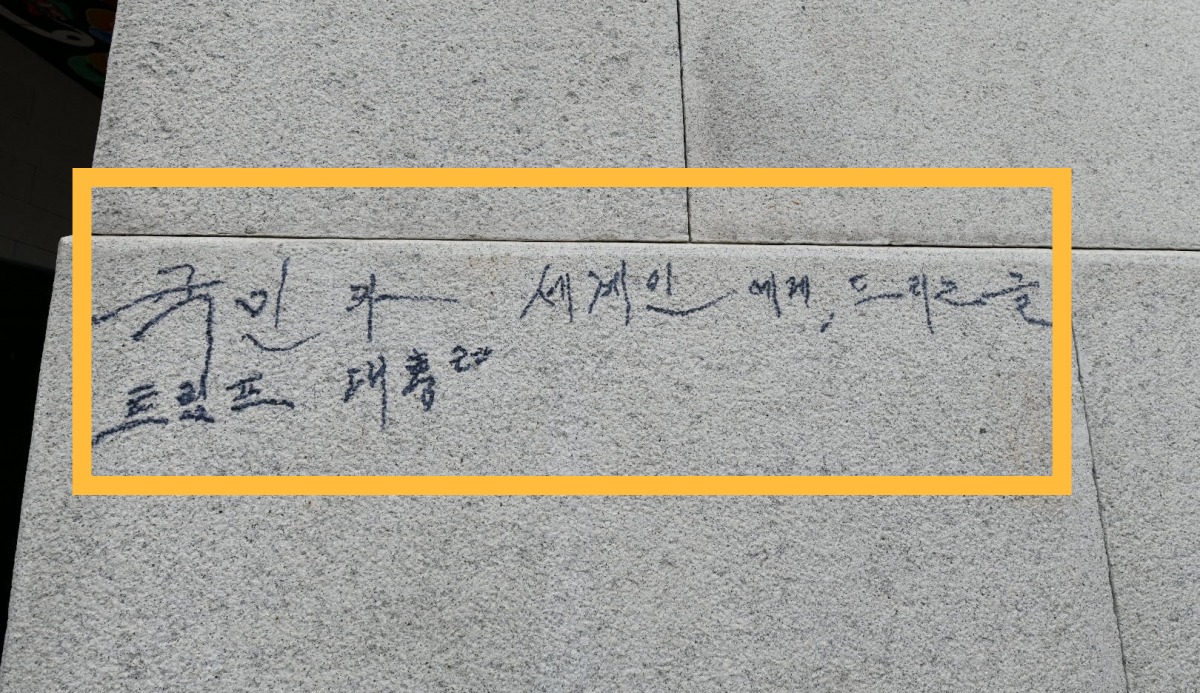 국민과 세계인에게, 드리는 글
트럼프 대통령